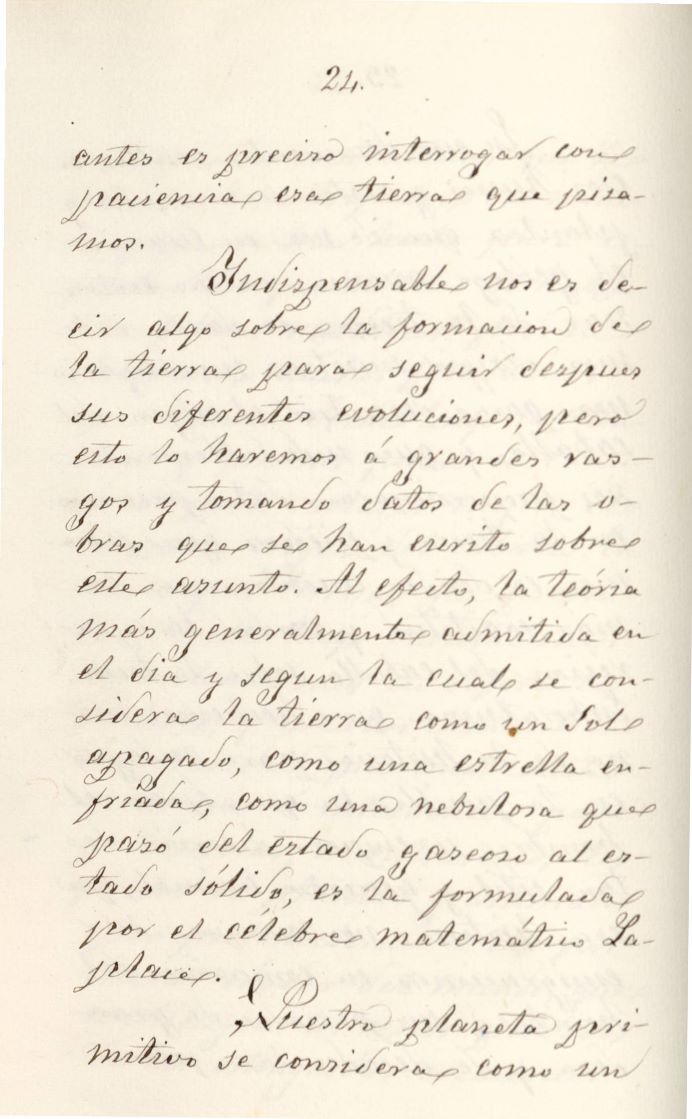 24.
antes es preciso interrogar con
paciencia esa tierra que pisa-
mos.
Indispensable nos es de-
cir algo sobre la formacion de
la tierra para seguir despues
sus diferentes evoluciones, pero
esto lo haremos á grandes ras-
gos y tomando datos de las o-
bras que se han escrito sobre
este asunto. Al efecto, la teória
más generalmente admitida en
el dia y segun la cual se con-
sidera la tierra como un Sol
apagado, como una estrella en-
friada, como una nebulosa que
pasó del estado gaseoso al es-
tado sólido, es la formulada
por el célebre matemático La-
place.
Nuestro planeta pri-
mitivo se considera como un